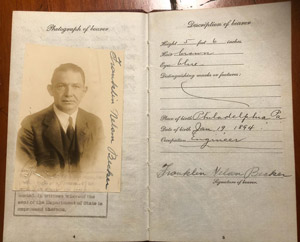 Photograph of bearer
Franklin Nelson Becker
Description of bearer
Height 5 feet 6 inches
Hair brown
Eyes blue
Distinguishing marks or features:
Place of birth Philadelphia Pa
Date of birth Jan 19, 1894
Occupation Engineer
Franklin Nelson Becker
Signature of bearer.
seal of the Department of State is
impressed thereon.